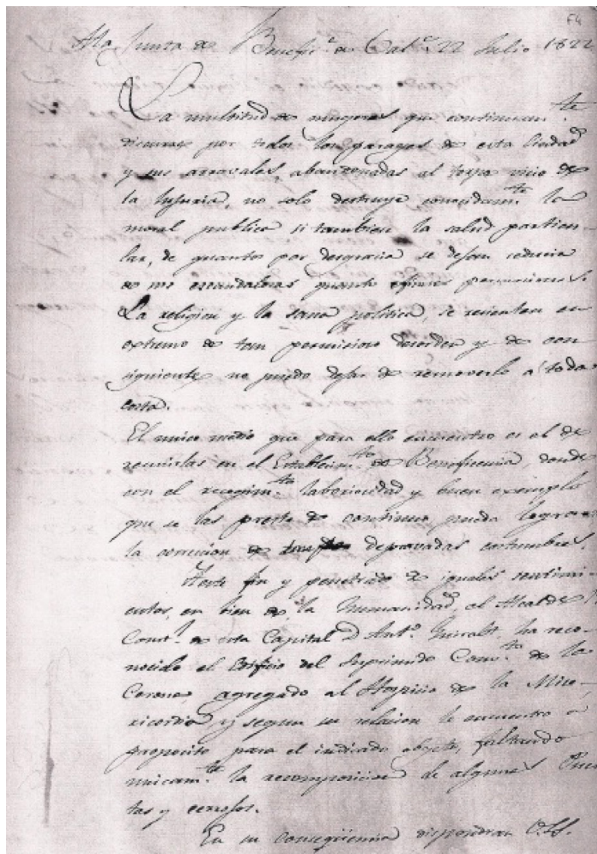 F4
A la Junta de Benefi.ª de Cat.ª 22 Julio 1822
La multitud de mugeres que continuam.te
discurre por todos los parages de esta Ciudad
y sus arravales, abandonadas al torpe vicio de
la lujuria, no solo destruye conocidam.te la
moral publica si tambien la salud particu-
lar, de quantos por desgracia se dejan seducir
de sus escandalosas quanto
La religion y la sana politica, se resienten en
extremo de tan pernicioso desorden y de con
siguiente no puedo dejar de removerlo a toda
costa.
El unico medio que para ello encuentro es el de
reunirlas en el Establecim.to de Beneficencia, donde
con el recogim.to laboriosidad y buen exemplo
que se las preste de continuo, pueda lograrse
la correccion de depravadas costumbres.
A este fin y penetrado de iguales sentimi-
entos, en bien de la humanidad, el Alcalde
Const.l de esta Capital D. Ant.º ha reco-
nocido el Edificio del Suprimido Conv.to de la
Corona, agregado al Hospicio de la Mise-
ricordia y segun su relacion le encuentro a
proposito para el indicado objeto, faltando
unicam.te la recomposicion de algunas Puer
tas y cerrojos.
En su conseqüencia dispondran V.SS.